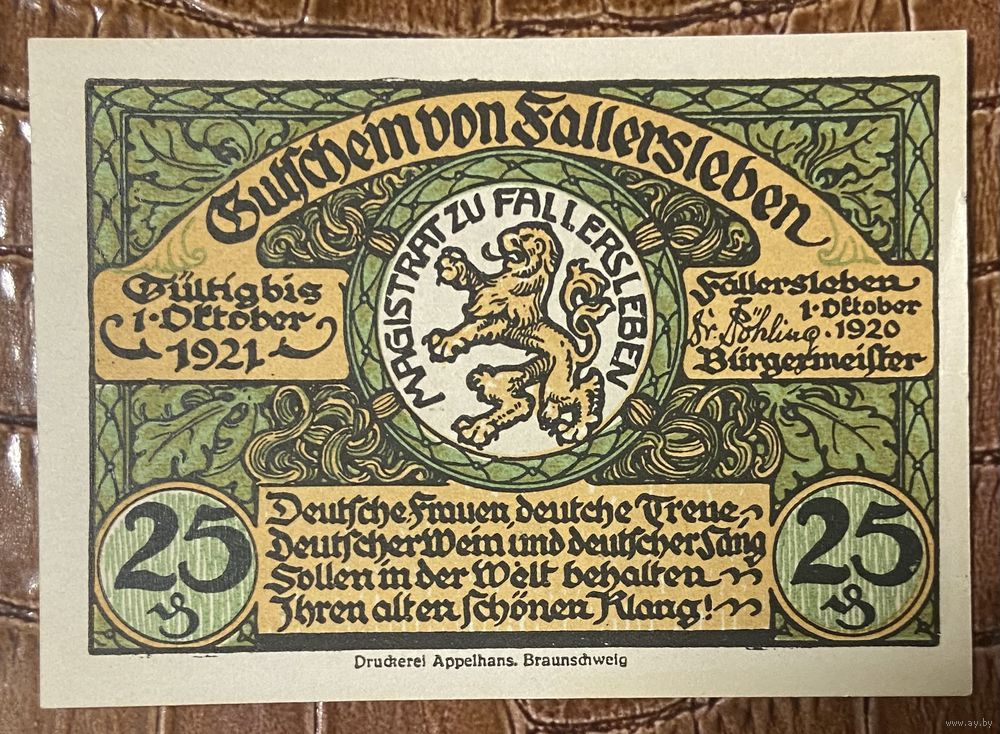 Gutschein von Fallersleben
MAGISTRAT ZU FALLERSLEBEN
Gültig bis
1. Oktober
1921
Fallersleben
1. Oktober
Dr Böhling. 1920
Bürgermeister
25
₰
25
₰
Deutsche Frauen, deutche Trene,
Deutscher Wein und deutscher Sang
Sollen in der Welt behalten
Ihren alten schönen Klang!
Druckerei Appelhans. Braunschweig
www.ay.by